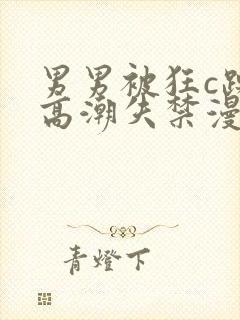 男男被狂c
高潮失禁漫
青燈下